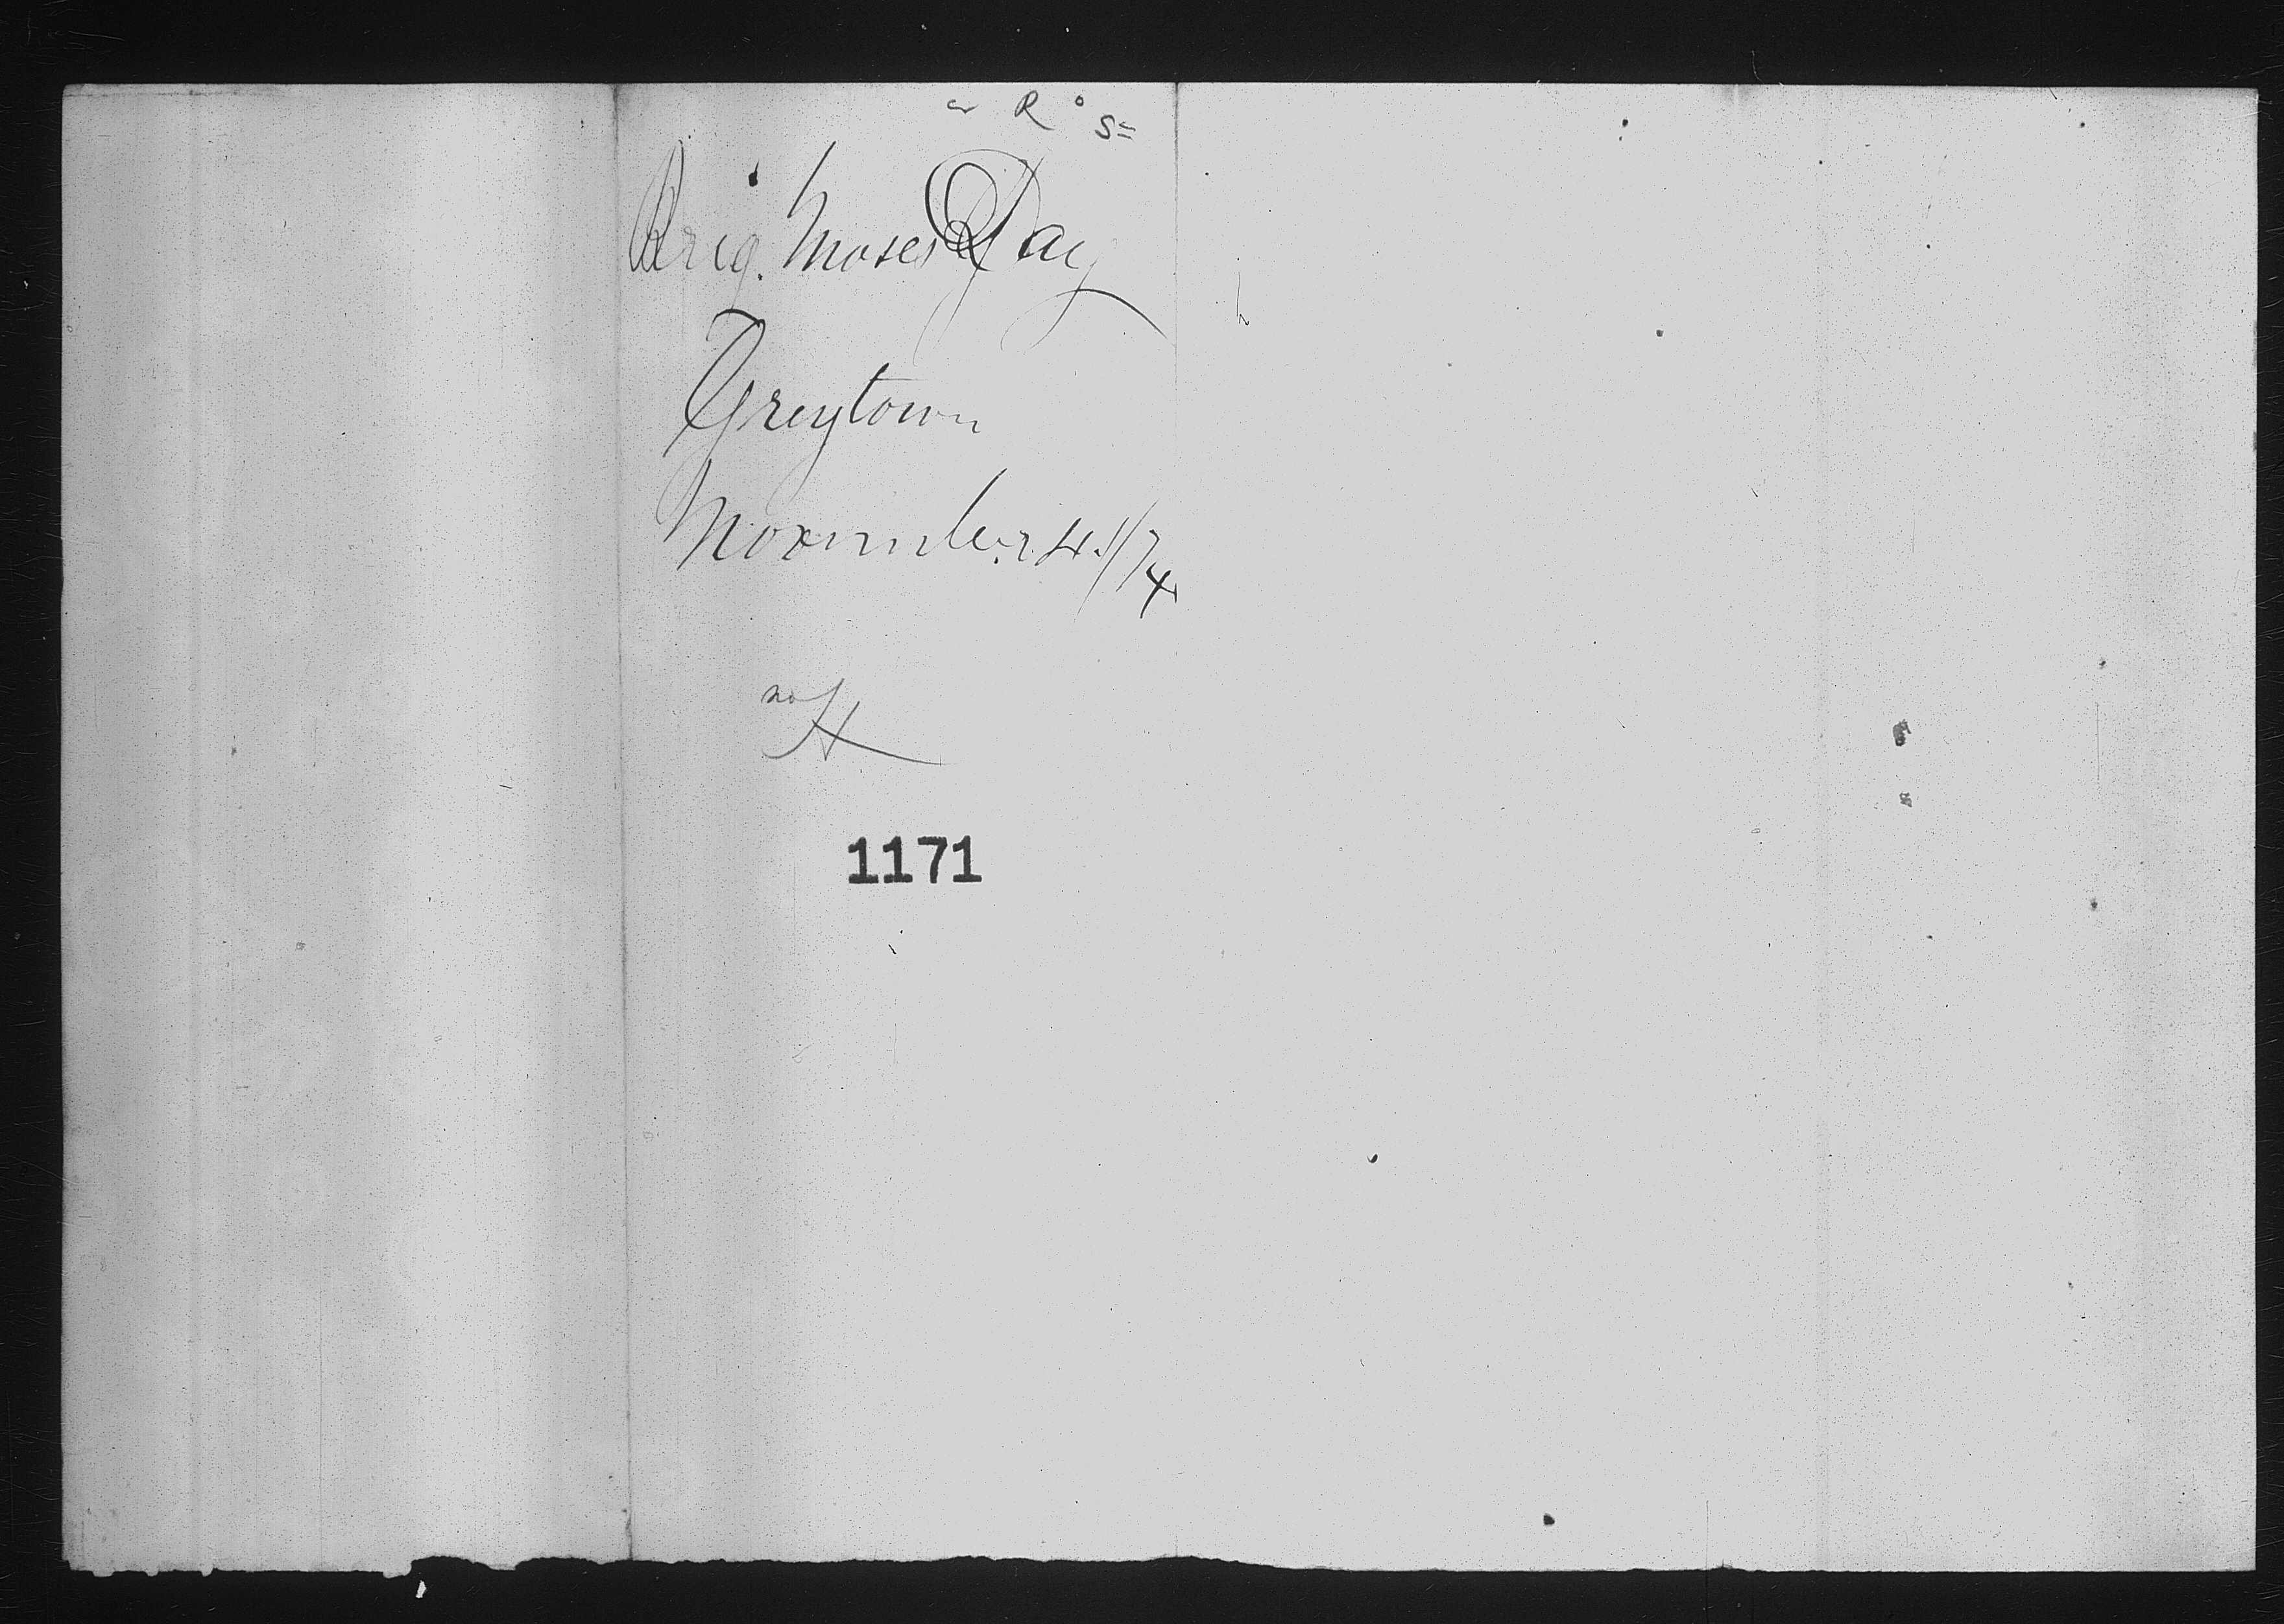 Brig. Moses Day
Greytown
November 4.1/74
1171